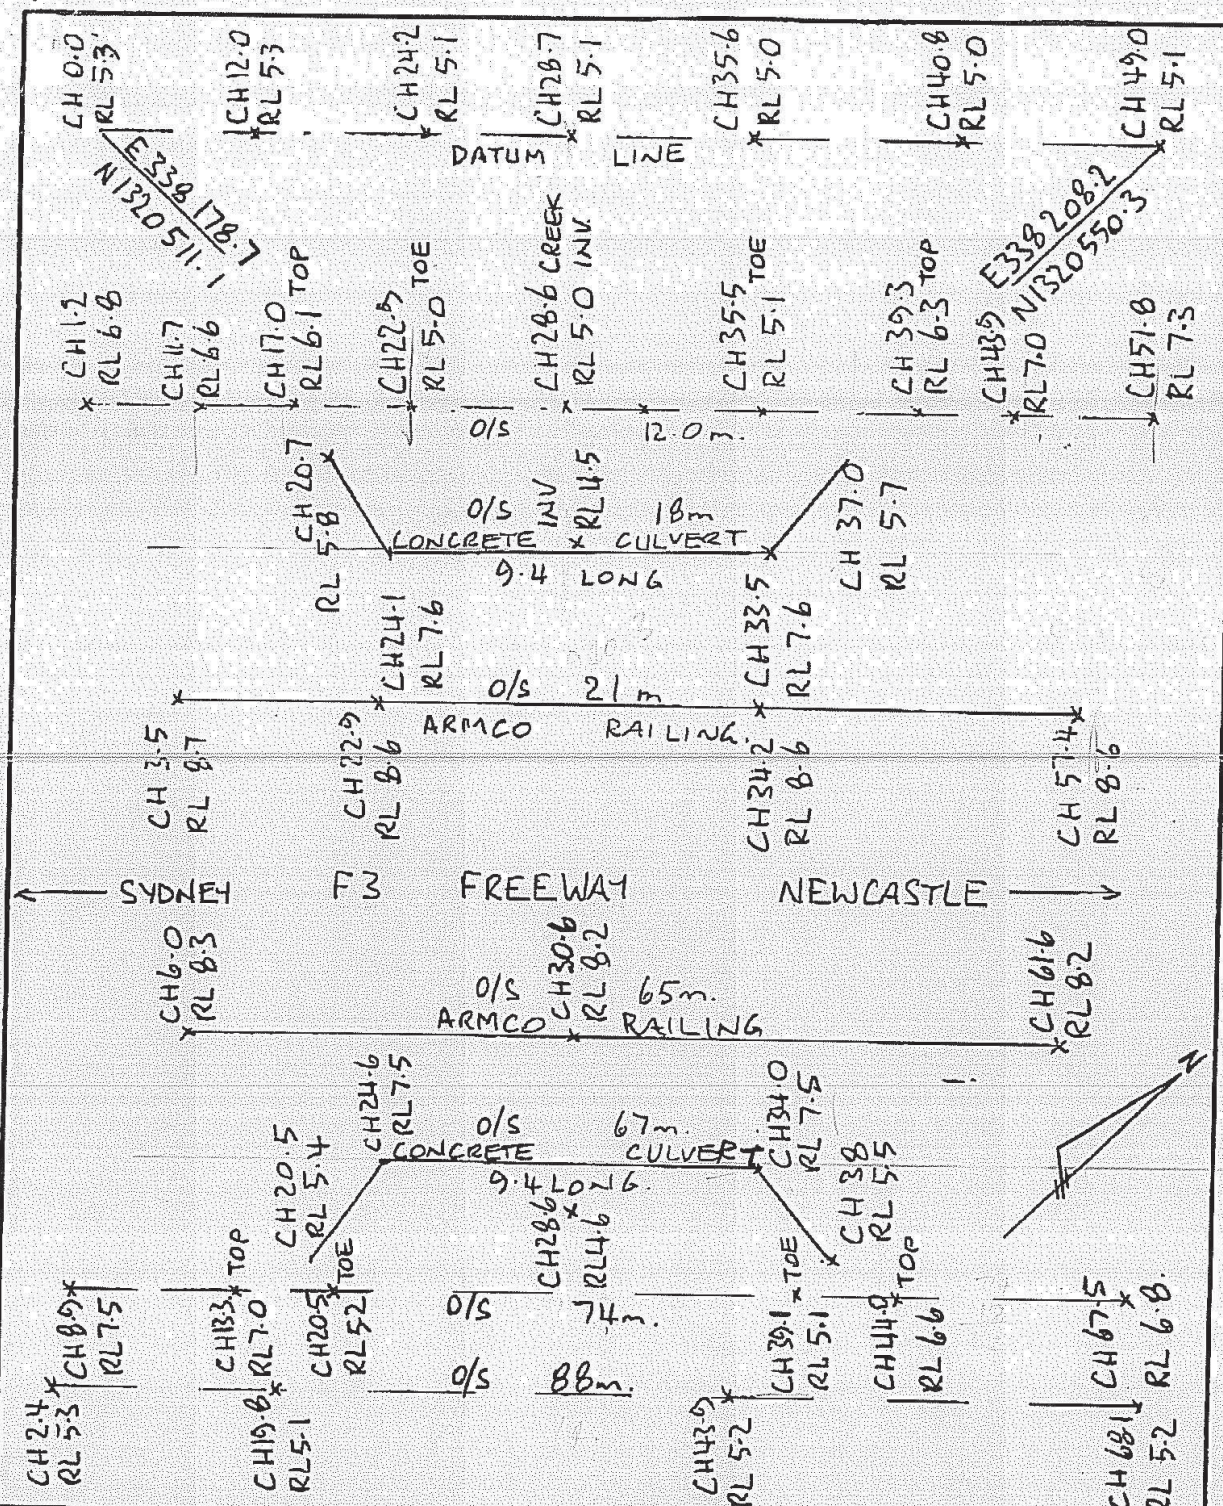 CH 0.0
RL 5.3
CH 12.0
RL 5.3
CH 24.2
RL 5.1
CH 28.7
RL 5.1
CH 35.6
RL 5.0
CH 40.8
RL 5.0
CH 49.0
RL 5.1
DATUM LINE
E338 178.7
N1320 511.1
E338 208.2
N1320550.3
CH 1.2
RL 6.8
CH 11.7
RL 6.6
CH 17.0
RL 6.1 TOP
CH 22.9
RL 5.0 TOE
CH 28.6 CREEK
RL 5.0 INV.
CH 35.5
RL 5.1 TOE
CH 39.3
RL 6.3 TOP
CH 43.9
RL 7.0
CH 51.8
RL 7.3
O/S 12.0m.
CH 20.7
RL 5.8
O/S 18m
INV
RL 4.5
CONCRETE CULVERT
9.4 LONG
CH 37.0
RL 5.7
CH 24.1
RL 7.6
CH 33.5
RL 7.6
O/S 21m
ARMCO RAILING.
CH 3.5
RL 8.7
CH 22.9
RL 8.6
CH 34.2
RL 8.6
CH 57.4
RL 8.6
SYDNEY F3 FREEWAY NEWCASTLE
CH 6.0
RL 8.3
CH 30.6
RL 8.2
CH 61.6
RL 8.2
O/S 65m.
ARMCO RAILING
N
CH 24.6
RL 7.5
CH 34.0
RL 7.5
O/S 67m.
CONCRETE CULVERT
9.4 LONG.
CH 20.5
RL 5.4
CH 38
RL 5.5
CH 28.6
RL 4.6
CH 8.9
RL 7.5
CH 13.3
RL 7.0
TOP
CH 20.5
RL 5.2
TOE
O/S 74m.
CH 39.1
RL 5.1
TOE
CH 44.0
RL 6.6
TOP
CH 67.5
RL 6.8.
O/S 88m.
CH 2.4
RL 5.3
CH 19.8
RL 5.1
CH 43.9
RL 5.2
CH 68.1
RL 5.2